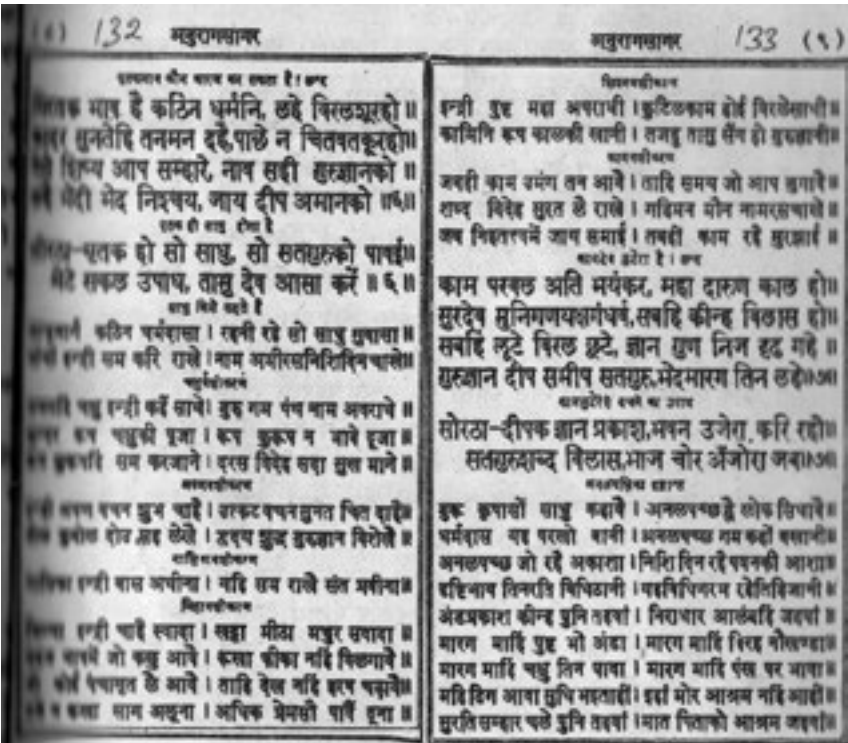 (८) 132 अनुरागसागर
मृतकभाव कौन धारण कर सकता है। छन्द
मृतक भाव है कठिन धर्मनि, लहे बिरलशूरहो॥
कादर सुनतेहि तनमन दहै, पाछे न चितवतकूरहो॥
शिष्य आप सम्हारे, नाव सही गुरुज्ञानको॥
भेदी भेद निश्चय, जाय दीप अमानको॥६॥
मृतक ही साधु होता है
सोरठा-मृतक हो सो साधु, सो सतगुरुको पावई॥
मेटे सकल उपाध, तासु देव आसा करें॥६॥
साधु किसे कहते हैं
साधुमार्ग कठिन धर्मदासा। रहनी रहे सो साधु सुवासा॥
पांचों इन्द्री सम करि राखे। नाम अमीरस निशिदिन चाखे॥
चक्षुवशीकरण
चक्षु इन्द्री कहँ साधे। गुरु गम पंथ नाम अवराधे॥
सुन्दर रूप चक्षुकी पूजा। रूप कुरूप न भावे दूजा॥
सम करजाने। दरस विदेह सदा सुख माने॥
श्रवणवशीकरण
इन्द्री श्रवण वचन शुभ चाहै। उत्कट वचन सुनत चित दाहै॥
बोल कुबोल दोउ सह लेखै। हृदय शुद्ध गुरुज्ञान विशेखै॥
नासिकावशीकरण
नासिका इन्द्री बास अधीना। यहि सम राखै संत प्रवीना॥
जिह्वावशीकरण
जिभ्या इन्द्री चाहै स्वादा। खट्टा मीठा मधुर सवादा॥
जो कछु आवै। रूखा फीका नहिं बिलगावै॥
कोई पंचामृत लै आवै। ताहि देख नहिं हरष बढ़ावै॥
रूखा साग अलूना। अधिक प्रेमसों पावै दूना॥
अनुरागसागर 133 (९)
शिश्नवशीकरण
इन्द्री दुष्ट महा अपराधी। कुटिलकाम होई बिरलेसाधी॥
कामिनि रूप कालकी खानी। तजहु तासु सँग हो गुरुज्ञानी॥
कामवशीकरण
जबही काम उमंग तन आवै। ताहि समय जो आप जगावै॥
शब्द विदेह सुरत लै राखे। गहिमन मौन नामरसचाखे॥
जब निहतत्त्वमें जाय समाई। तबही काम रहै मुरझाई॥
कामदेव लुटेरा है। छन्द
काम परबल अति भयंकर, महा दारुण काल हो॥
सुरदेव मुनिगणयक्षगंधर्व, सबहि कीन्ह बिलास हो॥
सबहि लूटे बिरल छूटे, ज्ञान गुण निज दृढ गहे॥
गुरुज्ञान दीप समीप सतगुरु, भेदमारग तिन लहे॥७॥
कामलुटेरेसे बचने का उपाय
सोरठा-दीपक ज्ञान प्रकाश, भवन उजेरा करि रहो॥
सतगुरुशब्द विलास, भाज चोर अँजोरा जब॥७॥
अनलपक्षका दृष्टान्त
गुरु कृपासों साधु कहावै। अनलपच्छ ह्वै लोक सिधावै॥
धर्मदास यह परखो बानी। अनलपच्छ गम कहों बखानी॥
अनलपच्छ जो रहै अकाशा। निशि दिन रहै पवनकी आशा॥
दृष्टिभाव तिनरति विधिठानी। यहविधिगरभ रहैतिहिजानी॥
अंडप्रकाश कीन्ह पुनि तहवां। निराधार आलंबहिं जहवां॥
मारग माहिं पुष्ट भो अंडा। मारग माहिं बिरह नौखण्डा॥
मारग माहिं चक्षु तिन पावा। मारग माहिं पंख पर भावा॥
महिढिग आवा सुधि भइताहीं। इहाँ मोर आश्रम नहिं आहीं॥
सुरतिसम्हार चले पुनि तहवां। मात पिताको आश्रम जहवां॥